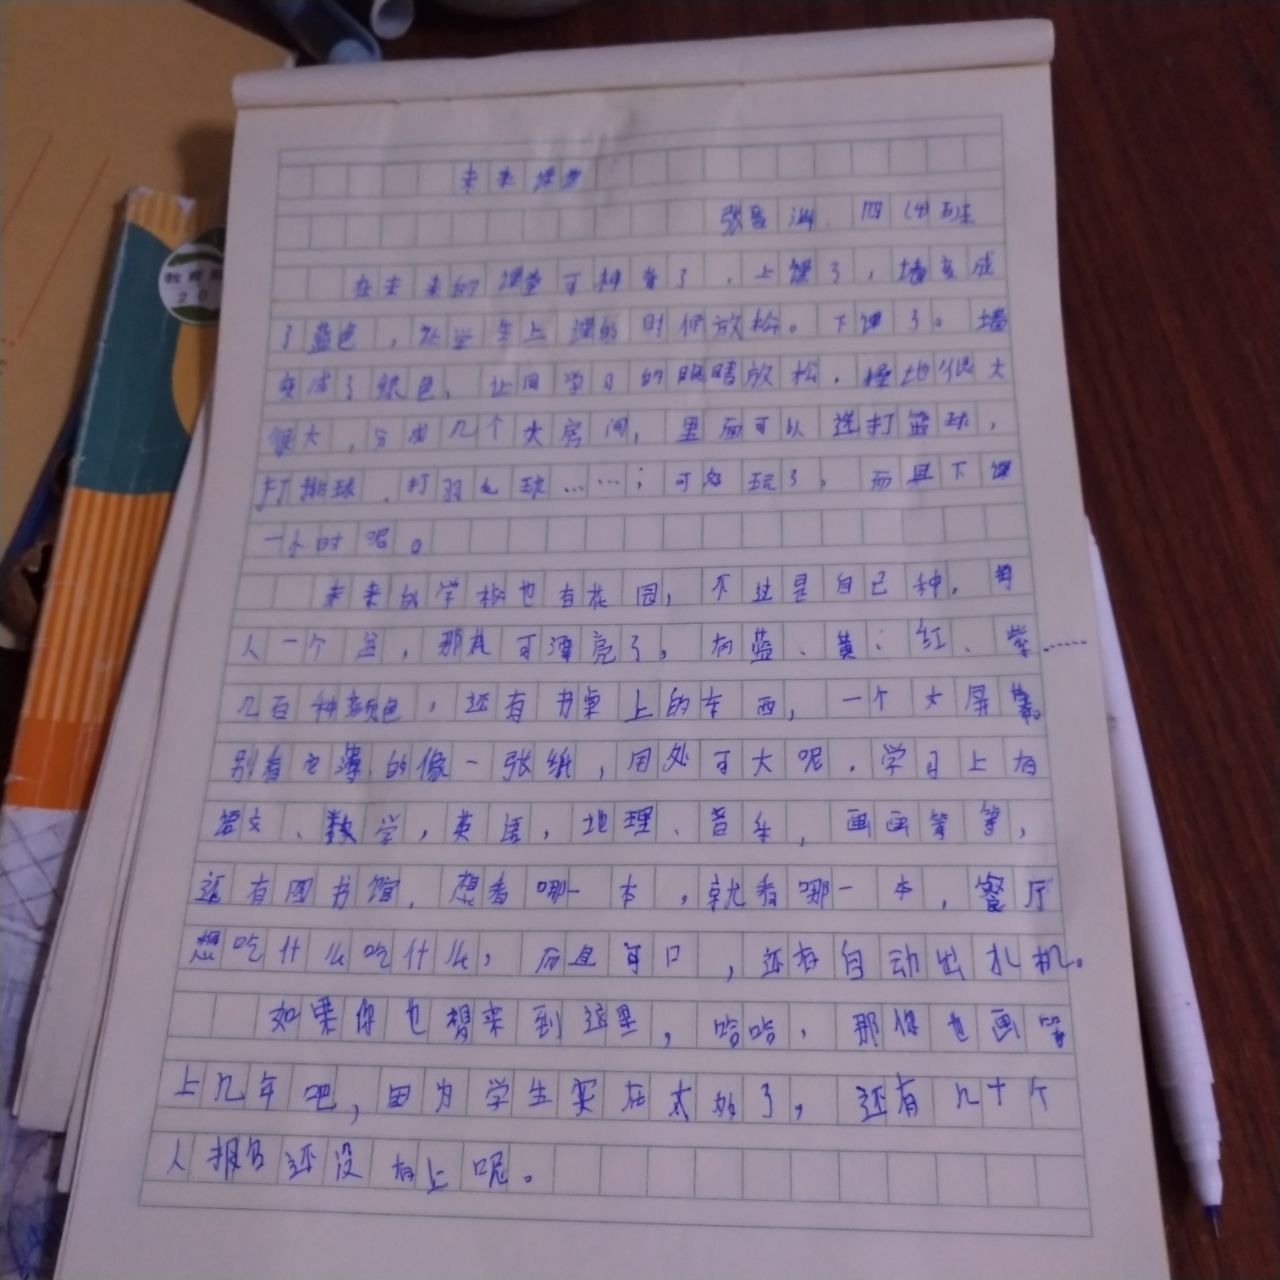 未来课堂
张 洲. 四(4)班
在未来的课堂可神奇了.上课了,墙变成
了蓝色,让学生上课的时候放松。下课了。墙
变成了绿色、让同学习的眼睛放松.操地很大
很大,分成几个大房间,里面可以选打篮球,
打排球.打羽毛球……;可好玩了,而且下课
一小时呢。
未来的学校也有花园,不过是自己种.每
人一个盆,那花可漂亮了,有蓝、黄、红、紫……
几百种颜色,还有书桌上的东西,一个大屏幕。
别看它薄的像一张纸,用处可大呢.学习上有
语文、数学,英语,地理、音乐,画画等等,
还有图书馆.想看哪一本,就看哪一本,餐厅
想吃什么吃什么,而且可口,还有自动出扎机。
如果你也想来到这里,哈哈,那你也画等
上几年吧,因为学生实在太 了,还有几十个
人报名还没有上呢。
教育
20